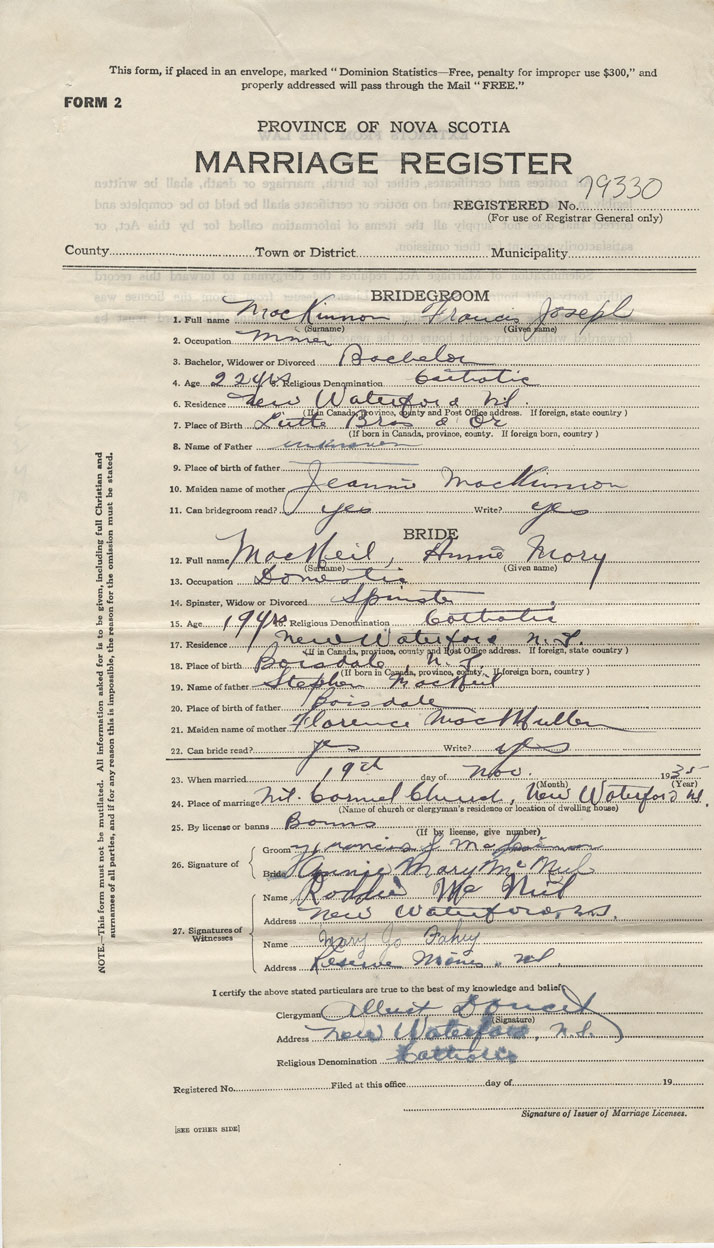 This form, if placed in an envelope, marked "Dominion Statistics—Free, penalty for improper use $300," and
properly addressed will pass through the Mail "FREE."
FORM 2
PROVINCE OF NOVA SCOTIA
MARRIAGE REGISTER
REGISTERED No. 79330
(For use of Registrar General only)
County Town or District Municipality
BRIDEGROOM
1. Full name MacKinnon, Francis Joseph
(Surname) (Given name)
2. Occupation Miner
3. Bachelor, Widower or Divorced Bachelor
4. Age 22 yrs 5. Religious Denomination Catholic
6. Residence New Waterford N.S.
(If in Canada, province, county and Post Office address. If foreign, state country)
7. Place of Birth Little Bras d'Or
(If born in Canada, province, county. If foreign born, country)
8. Name of Father unknown
9. Place of birth of father
10. Maiden name of mother Jeannie MacKinnon
11. Can bridegroom read? yes Write? yes
BRIDE
12. Full name MacNeil, Annie Mary
(Surname) (Given name)
13. Occupation Domestic
14. Spinster, Widow or Divorced Spinster
15. Age 19 yrs Religious Denomination Catholic
17. Residence New Waterford N.S.
(If in Canada, province, county and Post Office address. If foreign, state country)
18. Place of birth Boisdale, N.S.
(If born in Canada, province, county. If foreign born, country)
19. Name of father Stephen MacNeil
20. Place of birth of father Boisdale
21. Maiden name of mother Florence MacMullen
22. Can bride read? yes Write? yes
23. When married 19th day of Nov. 1935
(Month) (Year)
24. Place of marriage Mt. Carmel Church, New Waterford N.S.
(Name of church or clergyman's residence or location of dwelling house)
25. By license or banns Banns
(If by license, give number)
26. Signature of
Groom Francis J MacKinnon
Bride Annie Mary McNeil
27. Signatures of Witnesses
Name Roddie McNeil
Address New Waterford, N.S.
Name Mary Jo Fahey
Address Reserve Mines, N.S.
I certify the above stated particulars are true to the best of my knowledge and belief,
Clergyman Albert Doucet
(Signature)
Address New Waterford, N.S.
Religious Denomination Catholic
Registered No. Filed at this office day of 19
Signature of Issuer of Marriage Licenses.
[SEE OTHER SIDE]
NOTE.—This form must not be mutilated. All information asked for is to be given, including full Christian and
surnames of all parties, and if for any reason this is impossible, the reason for the omission must be stated.